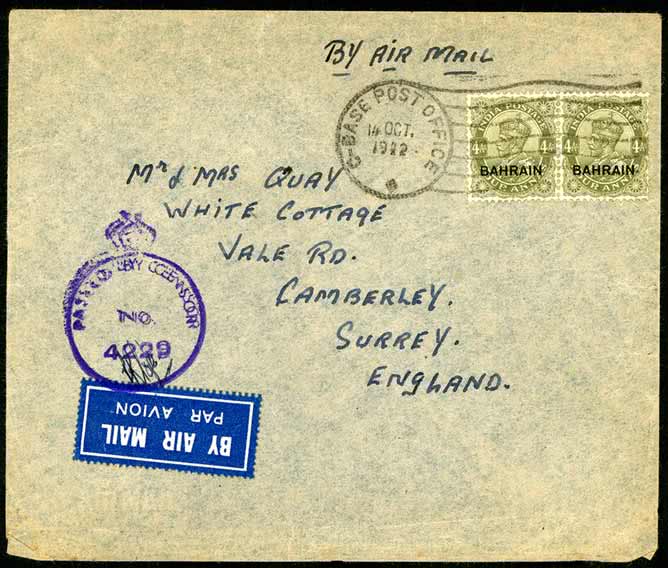 By Air Mail
G-BASE POST OFFICE
14 OCT.
INDIA POSTAGE INDIA POSTAGE
4A 4A 4A 4A
BAHRAIN BAHRAIN
Mr & Mrs Quay
White Cottage
Vale Rd.
Camberley.
Surrey.
England.
PASSED BY CENSOR
NO.
4229
BY AIR MAIL
PAR AVION